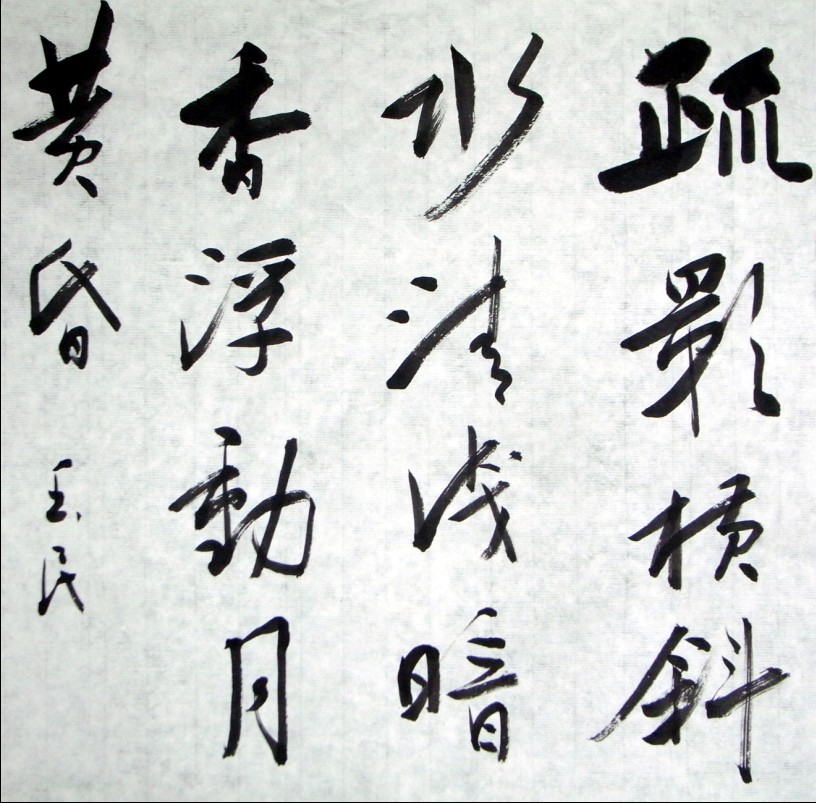 疏影橫斜
水清浅暗
香浮動月
黄昏 玉民